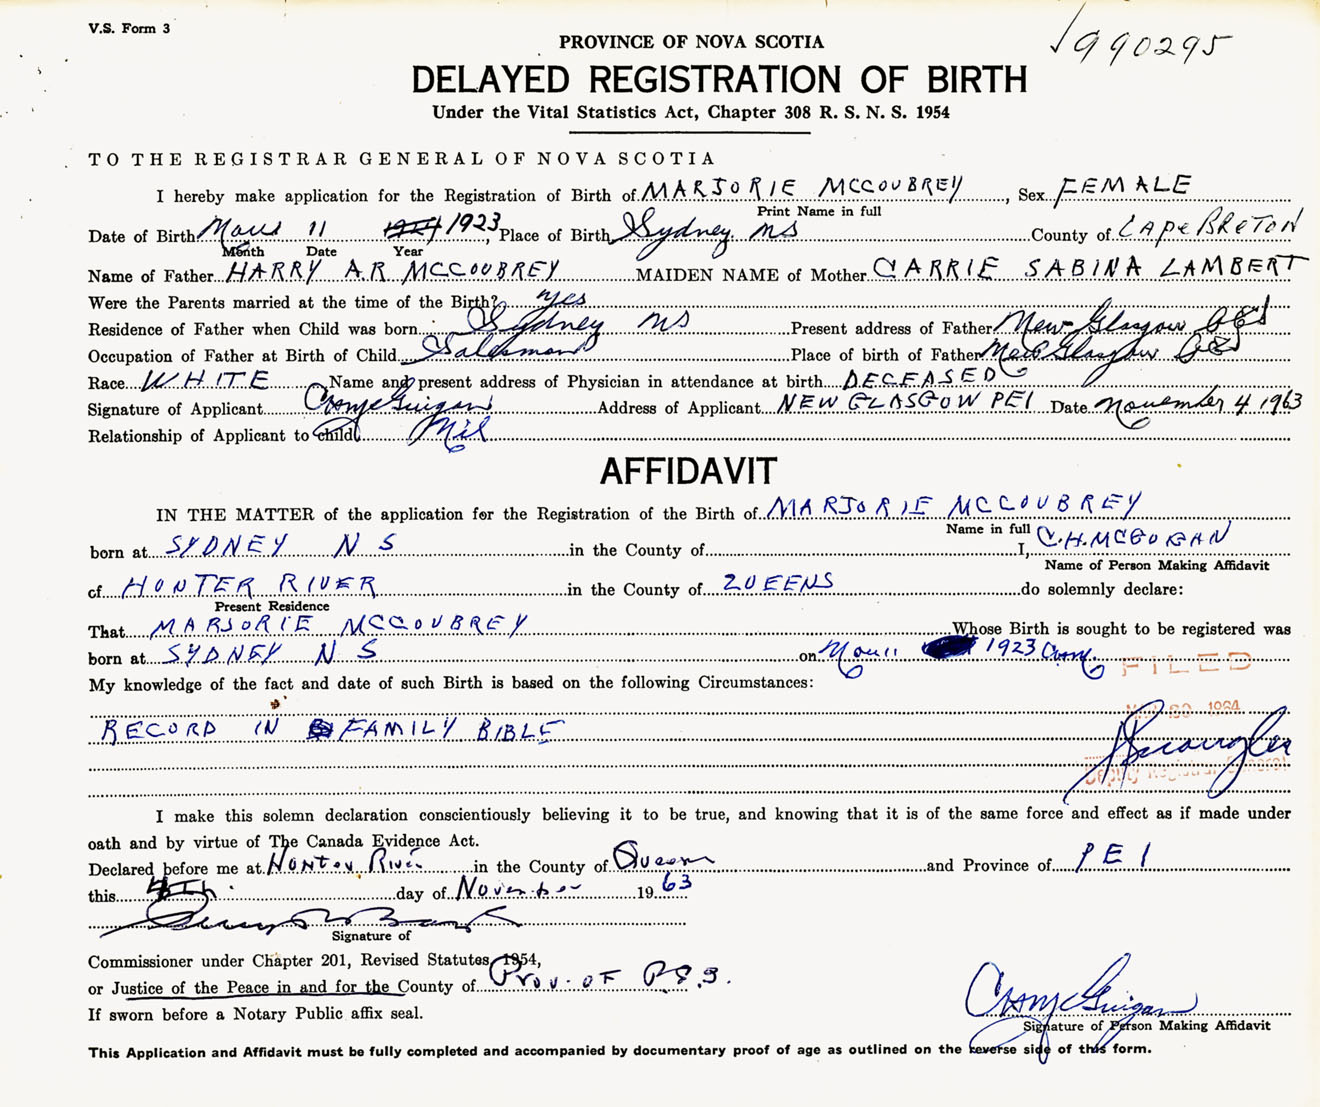 V.S. Form 3
990295
PROVINCE OF NOVA SCOTIA
DELAYED REGISTRATION OF BIRTH
Under the Vital Statistics Act, Chapter 308 R. S. N. S. 1954
TO THE REGISTRAR GENERAL OF NOVA SCOTIA
I hereby make application for the Registration of Birth of MARJORIE MCCOUBREY, Sex FEMALE
Print Name in full
Date of Birth 11 1923, Place of Birth Sydney NS County of CAPE BRETON
Month Date Year
Name of Father HARRY A.R. MCCOUBREY MAIDEN NAME of Mother CARRIE SABINA LAMBERT
Were the Parents married at the time of the Birth? yes
Residence of Father when Child was born Sydney NS Present address of Father New Glasgow PEI
Occupation of Father at Birth of Child Salesman Place of birth of Father New Glasgow PEI
Race WHITE Name and present address of Physician in attendance at birth DECEASED
Signature of Applicant Address of Applicant NEW GLASGOW PEI Date November 4 1963
Relationship of Applicant to child Nil
AFFIDAVIT
IN THE MATTER of the application for the Registration of the Birth of MARJORIE MCCOUBREY
Name in full
born at SYDNEY N S in the County of I, C.H.MCGUIGAN
Name of Person Making Affidavit
of HUNTER RIVER in the County of QUEENS do solemnly declare:
Present Residence
That MARJORIE MCCOUBREY Whose Birth is sought to be registered was
born at SYDNEY N S on 11 1923
FILED
My knowledge of the fact and date of such Birth is based on the following Circumstances:
1964
RECORD IN FAMILY BIBLE
Deputy Registrar General
I make this solemn declaration conscientiously believing it to be true, and knowing that it is of the same force and effect as if made under
oath and by virtue of The Canada Evidence Act.
Declared before me at Hunter River in the County of Queens and Province of PEI
this 4th day of November 1963
Signature of
Commissioner under Chapter 201, Revised Statutes, 1954,
or Justice of the Peace in and for the County of Prov. OF P.E.I.
If sworn before a Notary Public affix seal.
Signature of Person Making Affidavit
This Application and Affidavit must be fully completed and accompanied by documentary proof of age as outlined on the reverse side of this form.